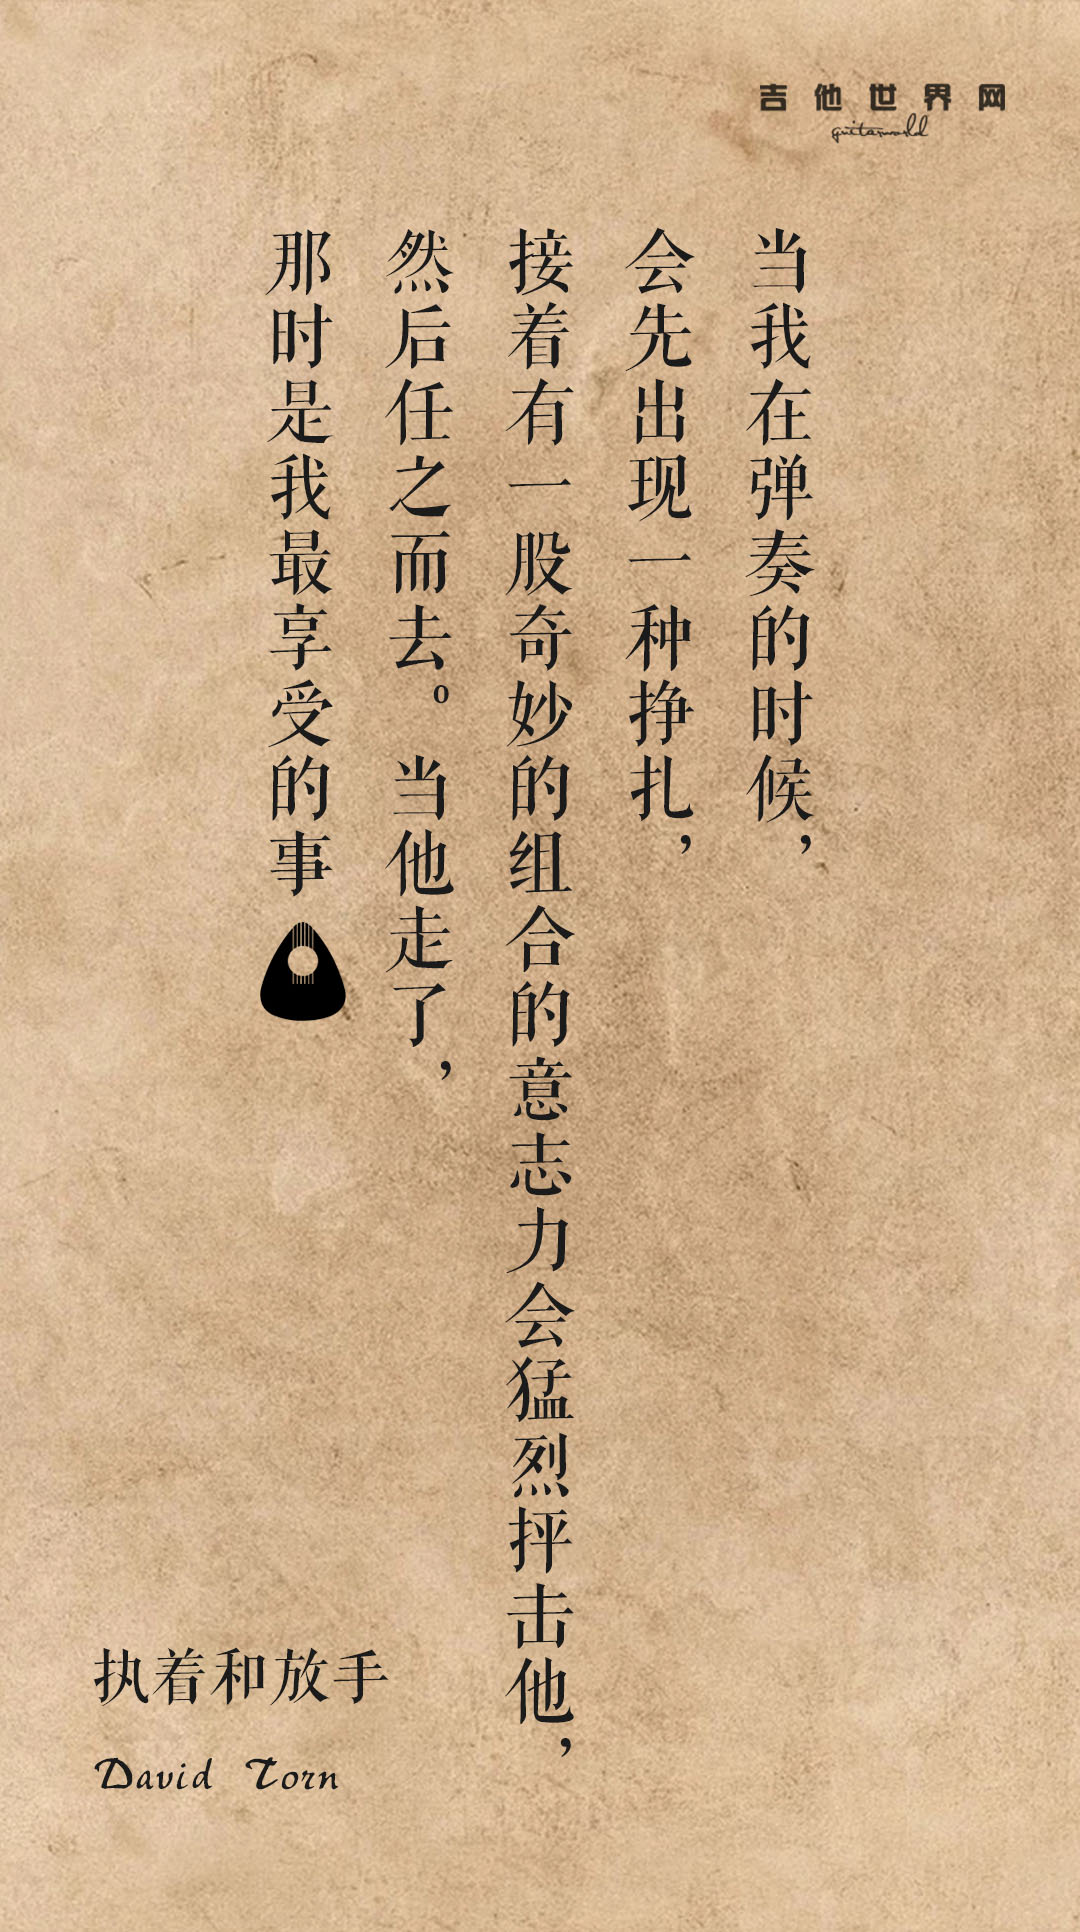 吉他世界网
guitarworld
当我在弹奏的时候，
会先出现一种挣扎，
接着有一股奇妙的组合的意志力会猛烈抨击他，
然后任之而去。当他走了，
那时是我最享受的事
执着和放手
David Torn